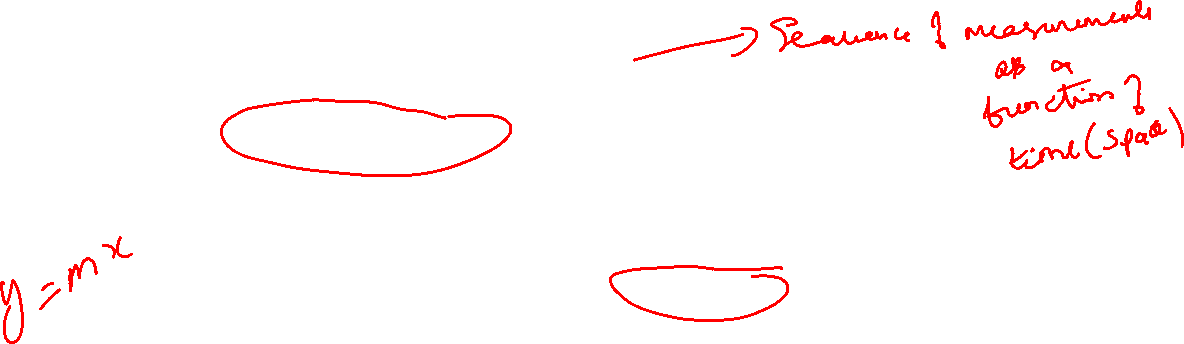 Sequence of measurements
as a
function of
time (space)
y = mx